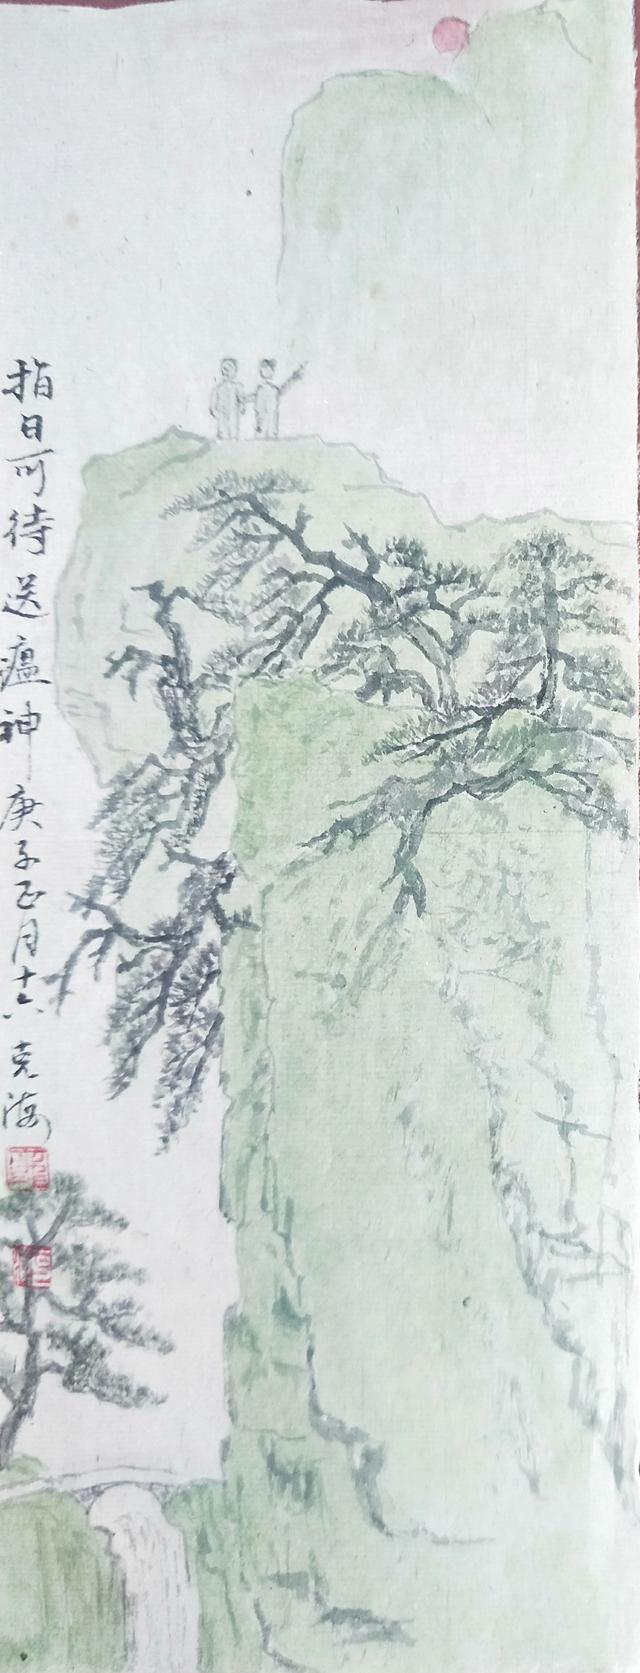 指日可待送瘟神庚子正月十六克海